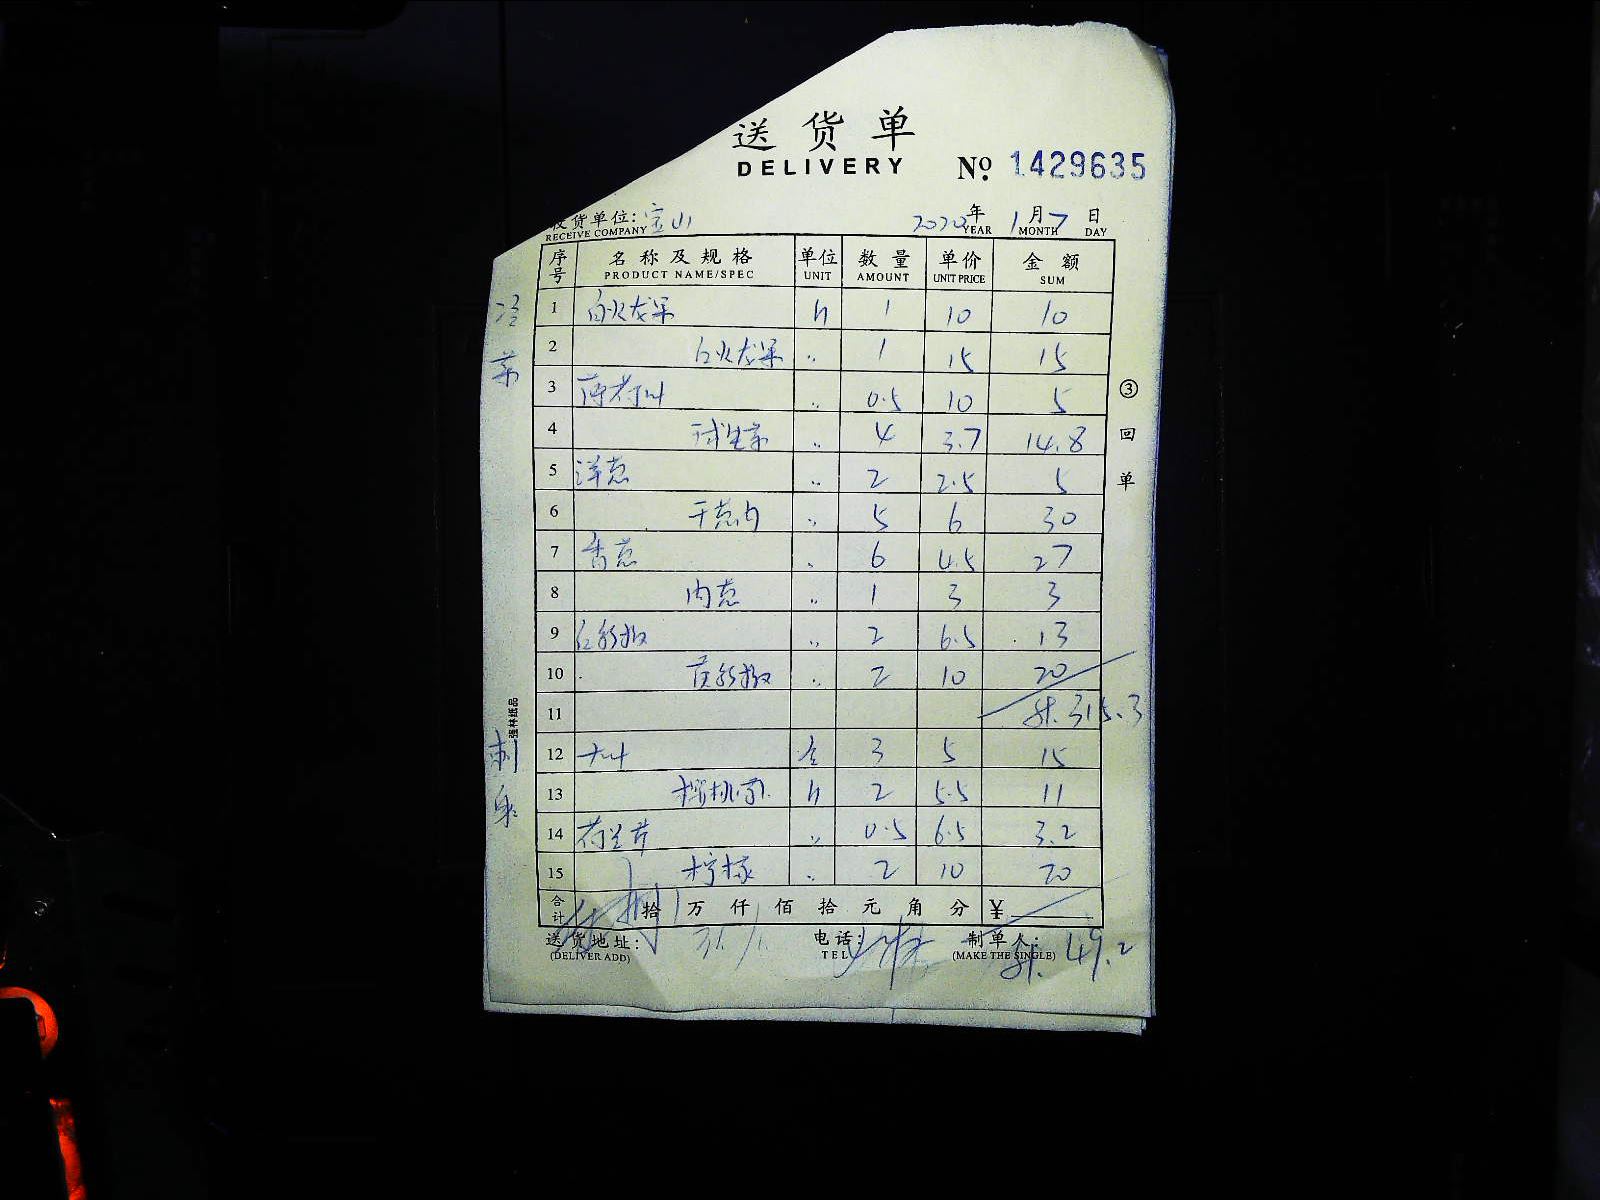 送货单
DELIVERY № 1429635
收货单位: 宝山 2020年 1月7日
RECEIVE COMPANY YEAR MONTH DAY
序号 名称及规格 单位 数量 单价 金额
PRODUCT NAME/SPEC UNIT AMOUNT UNIT PRICE SUM
冷菜
1 白火龙果 斤 1 10 10
2 红火龙果 〃 1 15 15
3 薄荷叶 〃 0.5 10 5
4 球生菜 〃 4 3.7 14.8
5 洋葱 〃 2 2.5 5
6 干葱肉 〃 5 6 30
7 香葱 〃 6 4.5 27
8 肉葱 〃 1 3 3
9 红彩椒 〃 2 6.5 13
10 黄彩椒 〃 2 10 20
11 315.3
刺身
12 大叶 3 5 15
13 樱桃萝 斤 2 5.5 11
14 荷兰芹 〃 0.5 6.5 3.2
15 柠檬 〃 2 10 20
合计 拾 万 仟 佰 拾 元 角 分 ¥
送货地址: 电话: 制单人:
(DELIVER ADD) TEL (MAKE THE SINGLE)
49.2
③回单
强林纸品